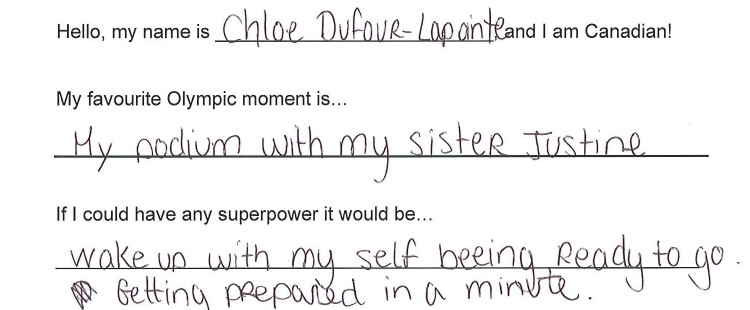 Hello, my name is Chloe Dufour-Lapointe and I am Canadian!
My favourite Olympic moment is…
My podium with my sister Justine
If I could have any superpower it would be…
wake up with my self beeing Ready to go.
Getting prepared in a minute.